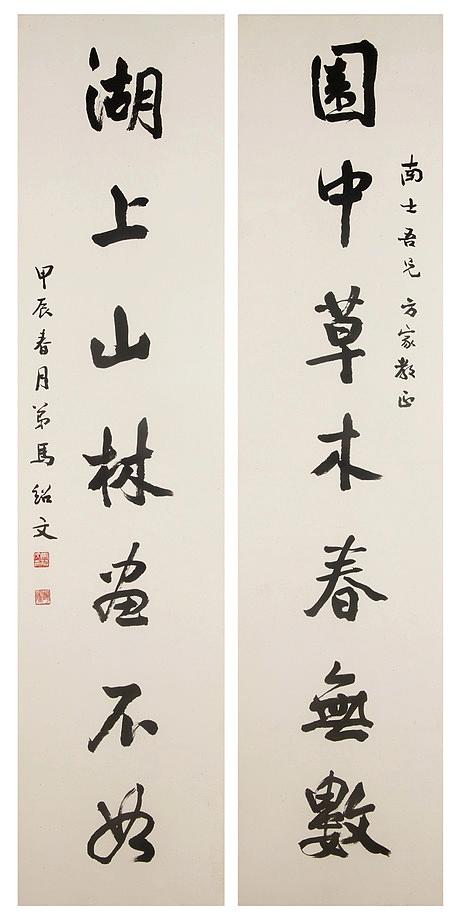 南士吾兄方家教正
園中草木春無數
湖上山林畫不如
甲辰春月弟馬紹文